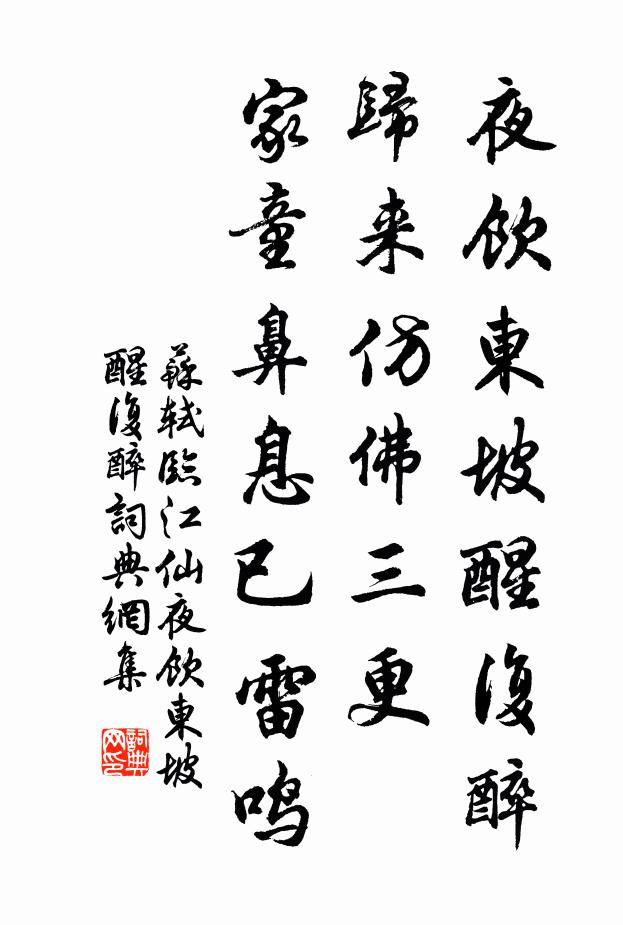 夜飲東坡醒復醉
歸来仿佛三更
家童鼻息已雷鳴
蘇軾臨江仙夜飲東坡
醒復醉詞典網集
詞典
网印